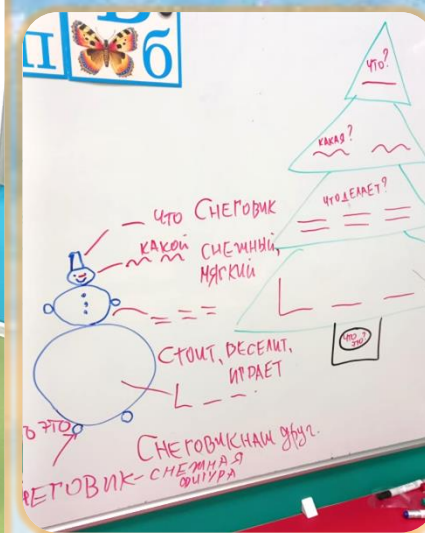 П
б
ЧТО?
КАКАЯ?
ЧТО ДЕЛАЕТ?
ЧТО СНЕГОВИК
КАКОЙ СНЕЖНЫЙ,
МЯГКИЙ
СТОИТ, ВЕСЕЛИТ,
ИГРАЕТ
СНЕГОВИК НАШ друг.
ЭТО
СНЕЖНАЯ
ФИГУРА